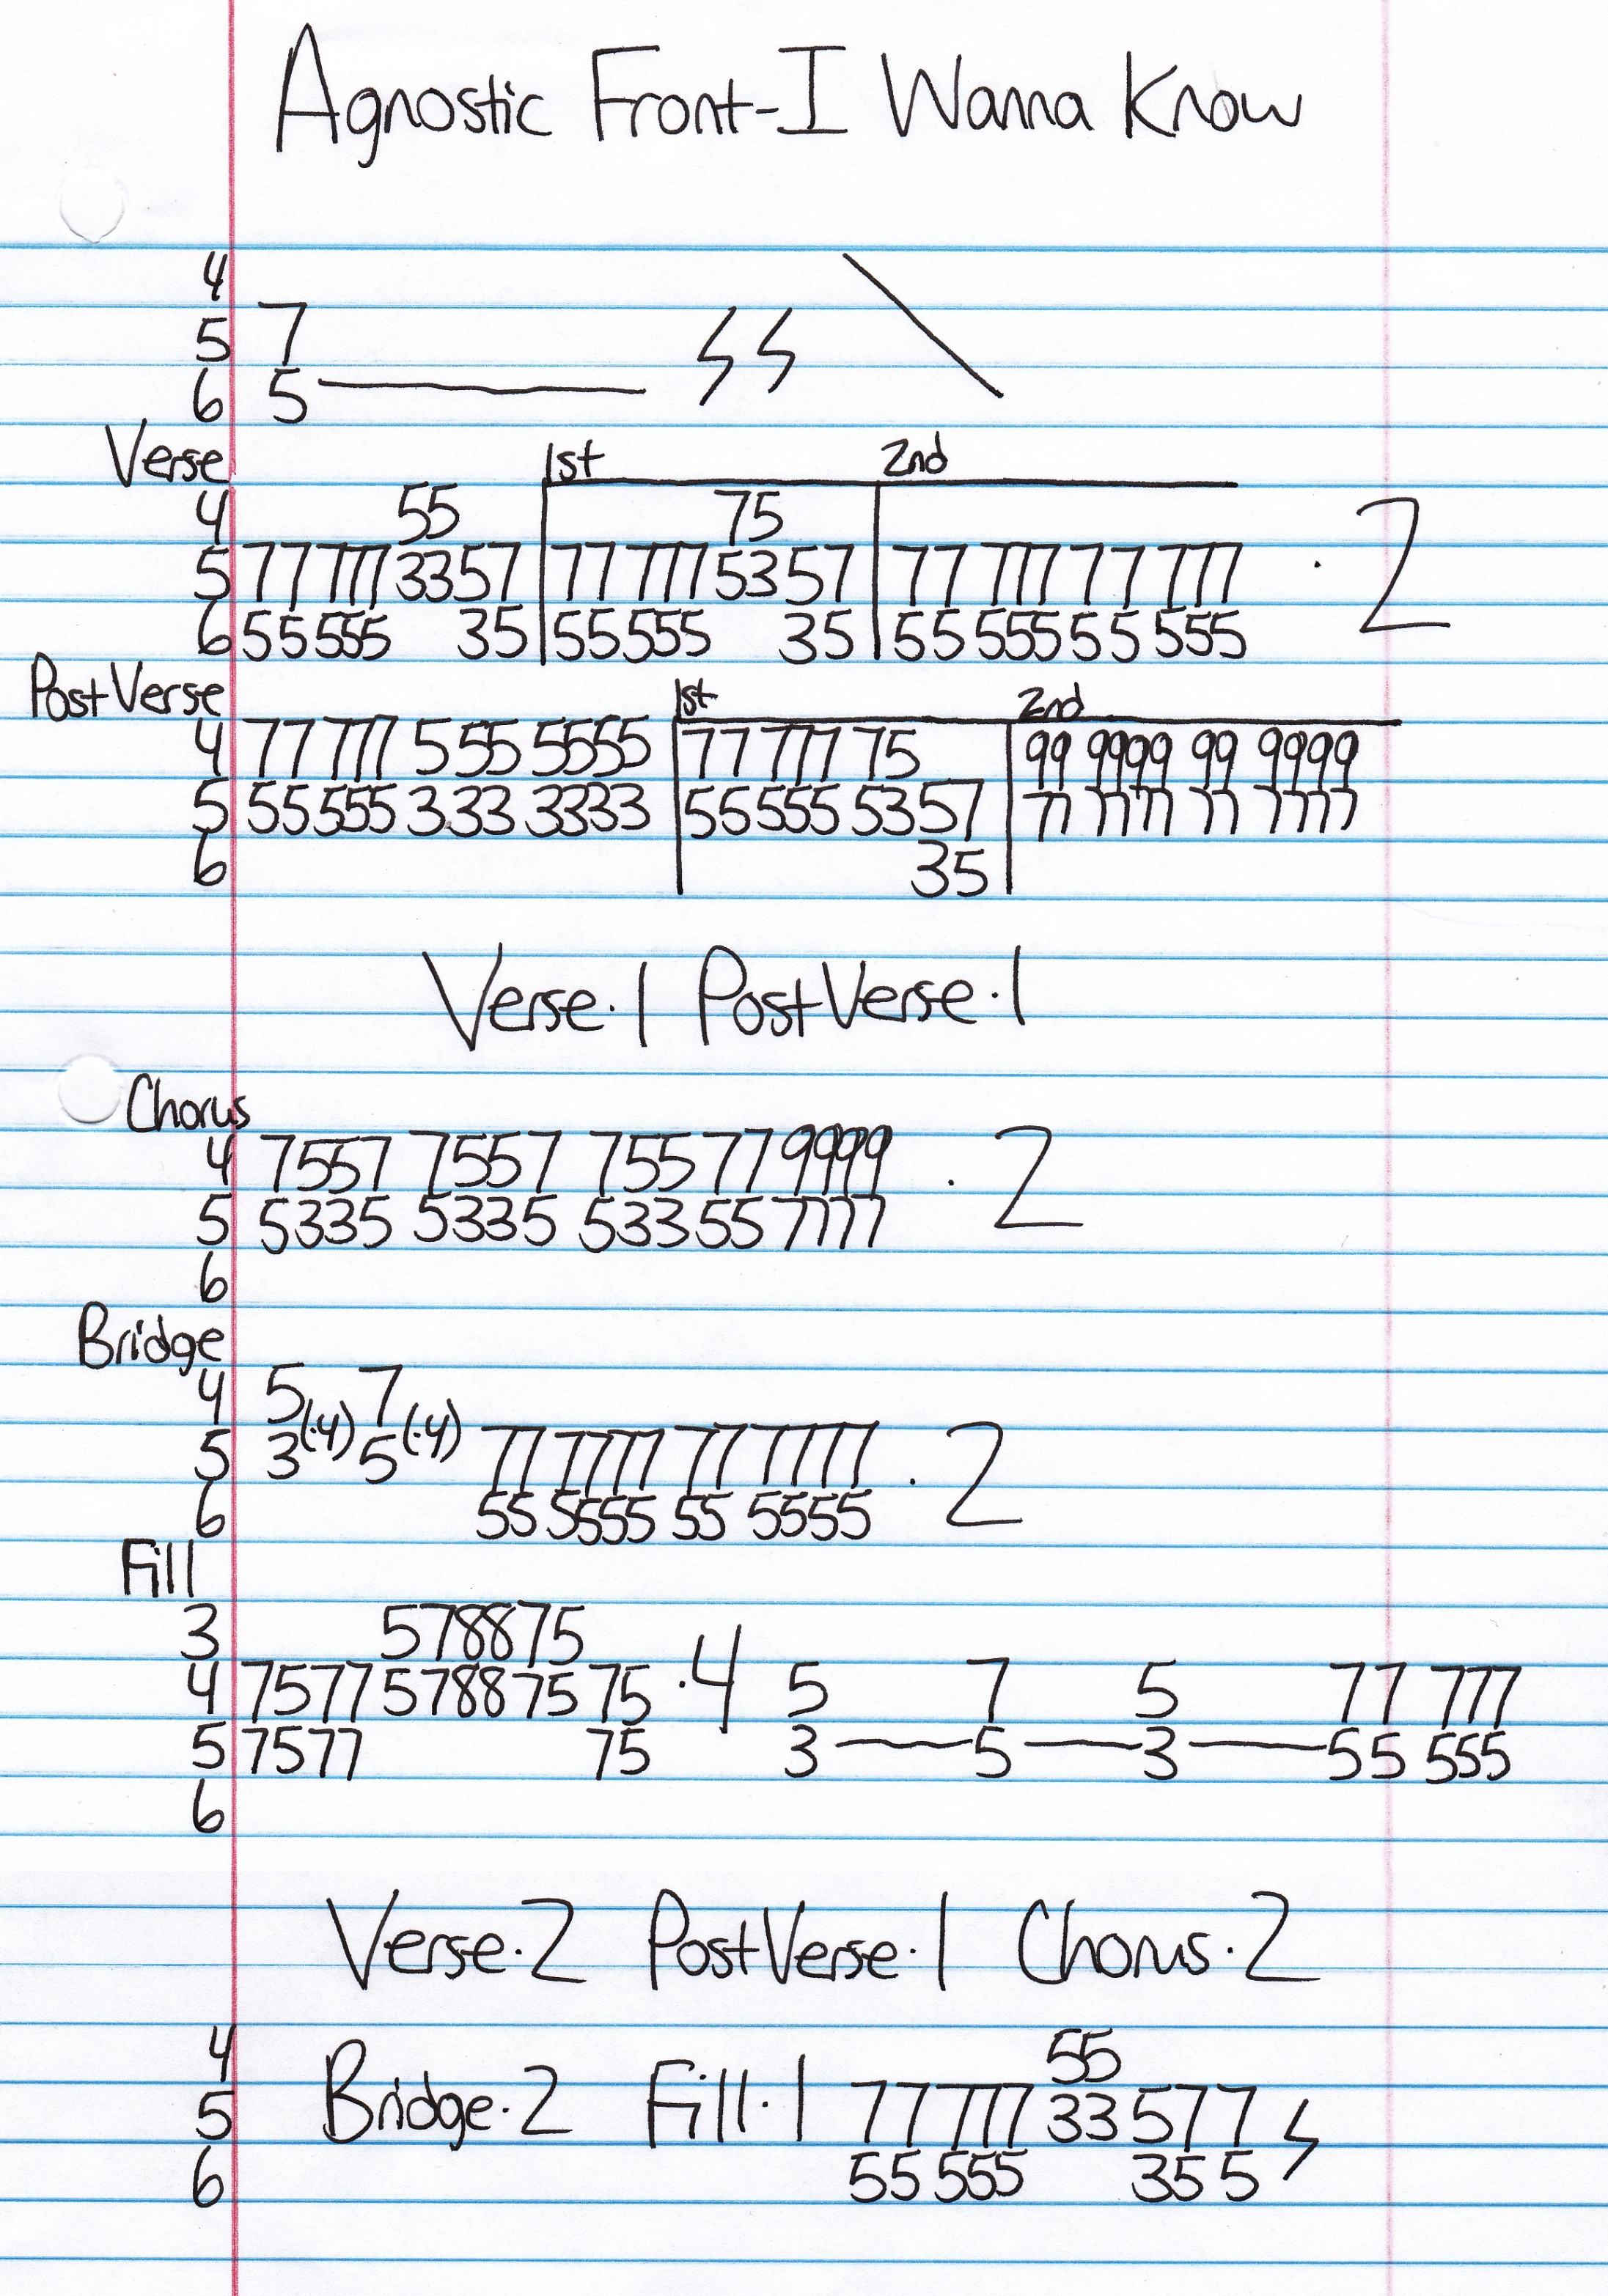 Agnostic Front-I Wanna Know
4
5 7
6 5
Verse 1st 2nd
4 55 75
5 77 777 3357 77 777 5357 77 777 77 777 · 2
6 55 555 35 55 555 35 55 555 55 555
Post Verse 1st 2nd
4 77 777 5 55 5555 77 777 75 99 9999 99 9999
5 55 555 3 33 3333 55 555 5357 77 7777 77 7777
6 35
Verse·1 Post Verse·1
Chorus
4 7557 7557 755 77 9999 · 2
5 5335 5335 533 55 7777
6
Bridge
4 5 7
5 3(·4) 5(·4) 77 7777 77 7777 · 2
6 55 5555 55 5555
Fill
3 578875
4 7577 578875 75 ·4 5 7 5 77 777
5 7577 75 3 5 3 55 555
6
Verse·2 Post Verse·1 Chorus·2
4 55
5 Bridge·2 Fill·1 77 777 33 577
6 55 555 35 5